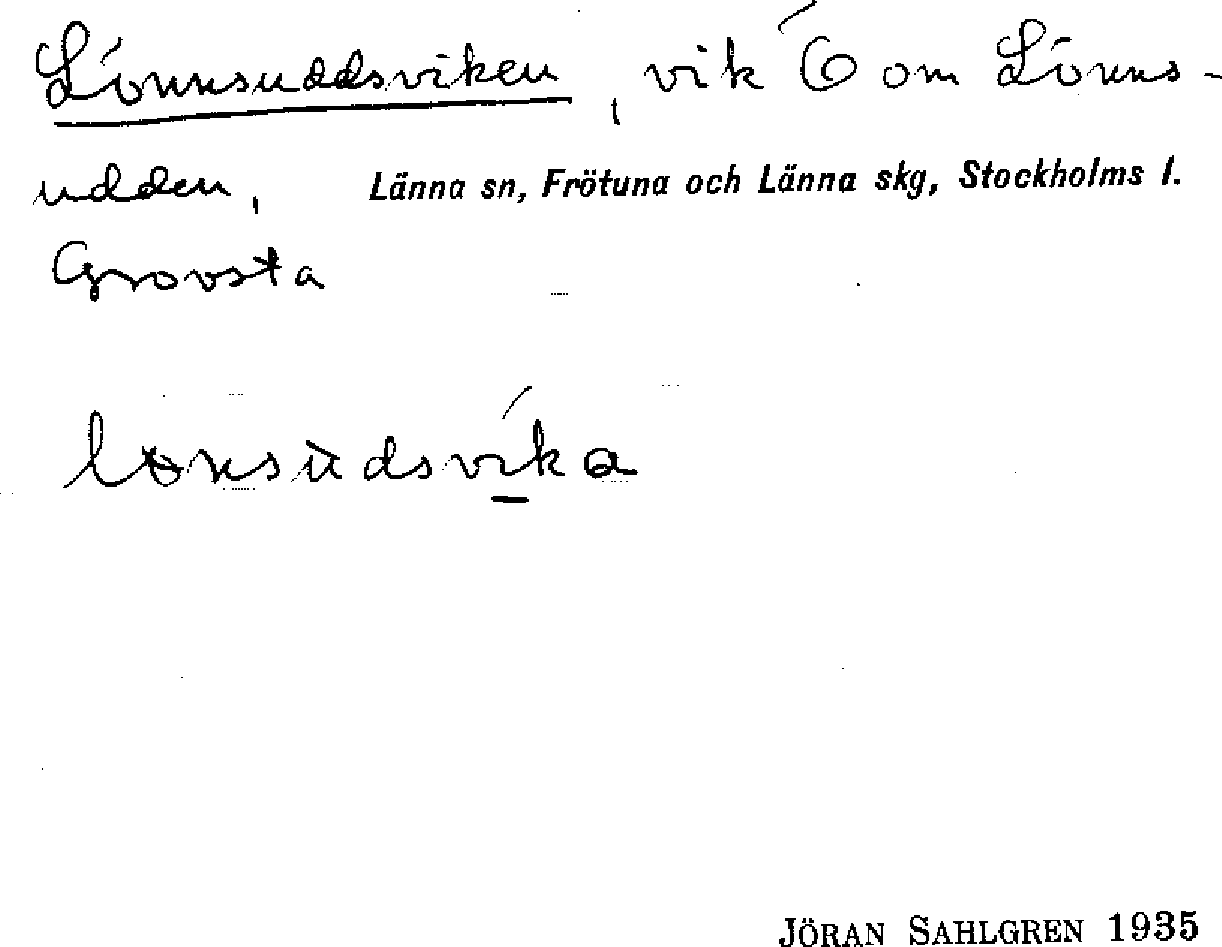 Lönnsuddsviken, vik Ö om Lönns-
udden, Länna sn, Frötuna och Länna skg, Stockholms l.
Grovsta
JÖRAN SAHLGREN 1935